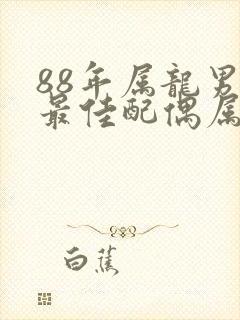 88年属龍男
最佳配偶属
白蕉